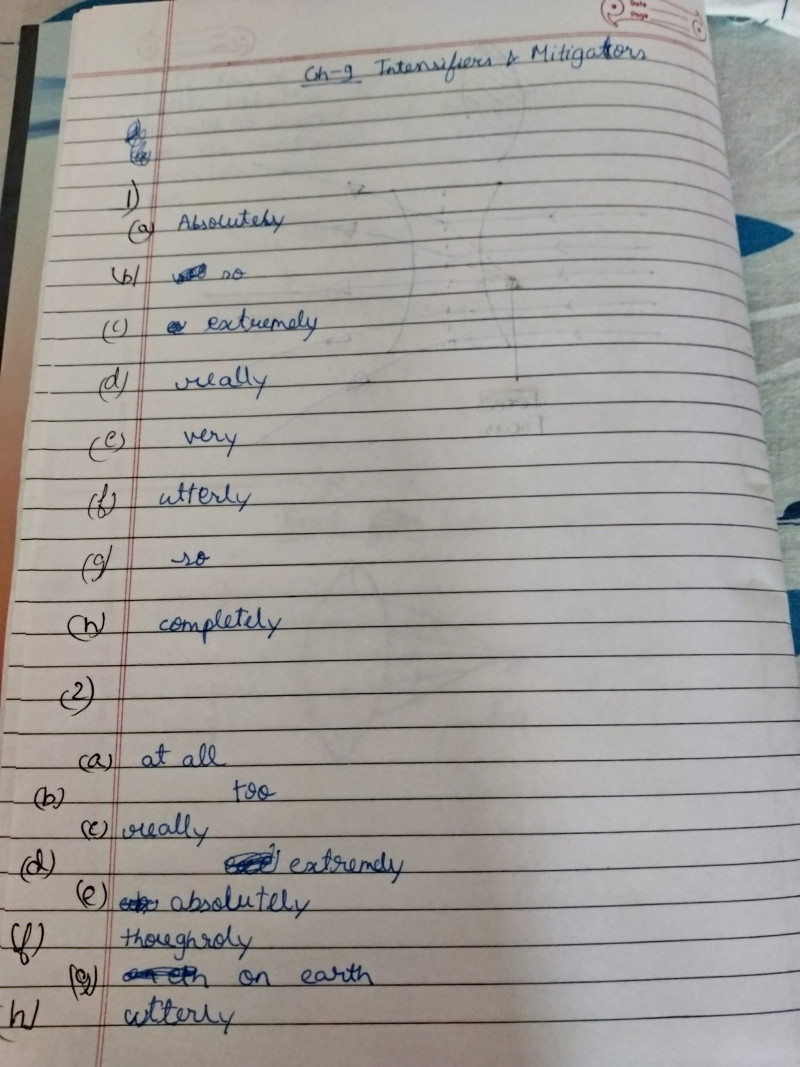 Date
Page
Ch-9 Intensifiers & Mitigators
1)
(a) Absolutely
(b) so
(c) extremely
(d) really
(e) very
(f) utterly
(g) so
(h) completely
(2)
(a) at all
(b) too
(c) really
(d) extremely
(e) absolutely
(f) thoughroly
(g) on earth
(h) utterly